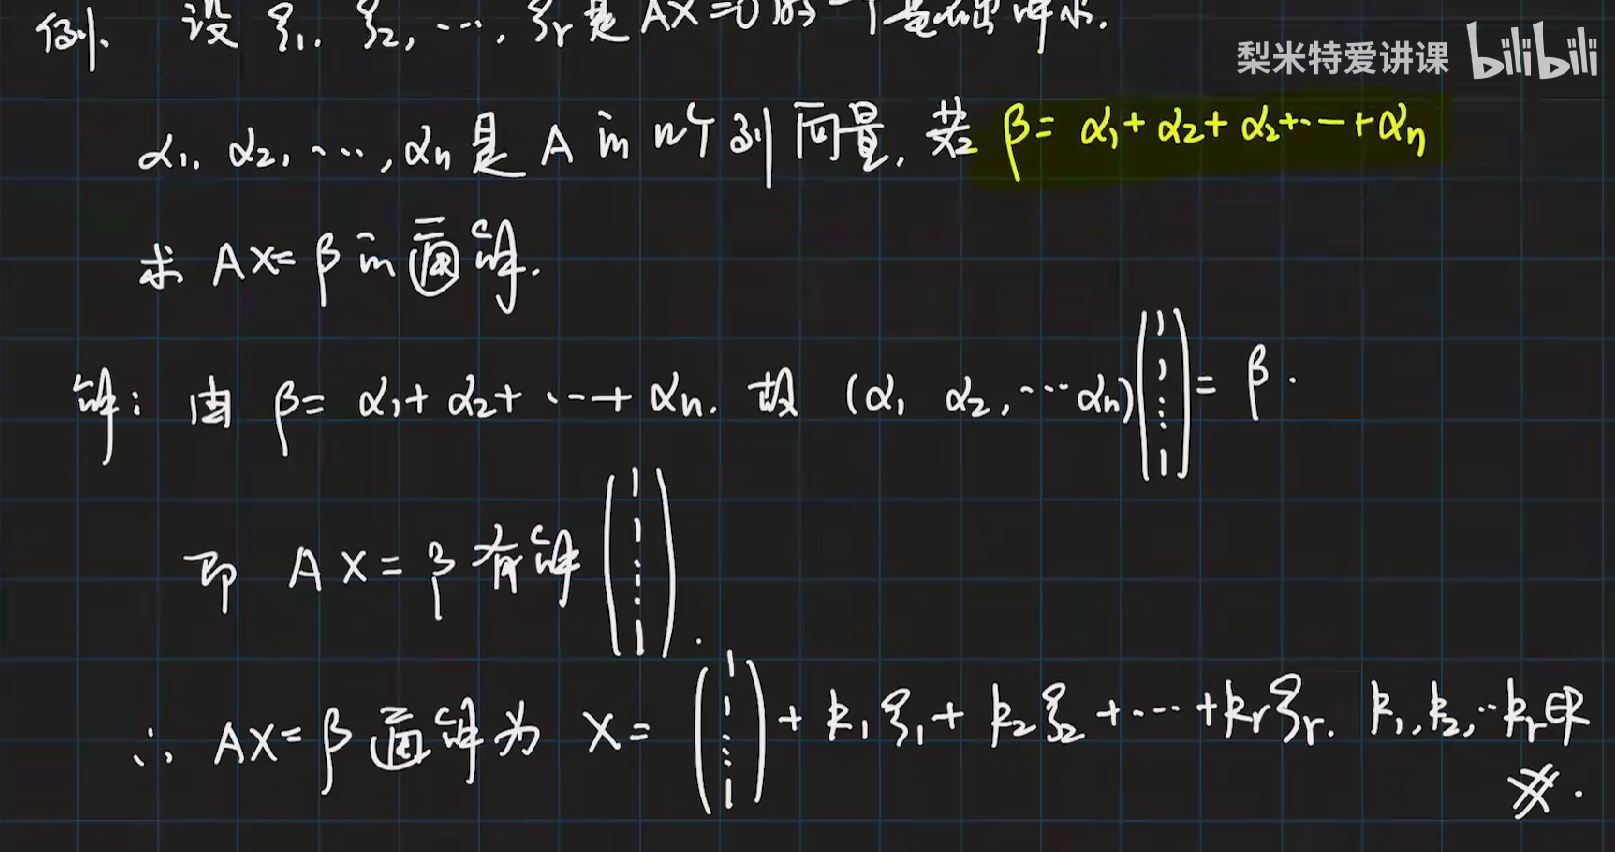 例、设 ξ₁, ξ₂, …, ξᵣ 是 AX=0 的一个基础解系.
梨米特爱讲课 bilibili
α₁, α₂, …, αₙ 是 A 的 n个列向量, 若 β= α₁+ α₂+ α₂+…+αₙ
求 AX=β 的通解.
解: 由 β= α₁+ α₂+ …+ αₙ. 故 (α₁ α₂, … αₙ)(1 1 ⋮ 1) = β.
即 AX=β 有解 (1 1 ⋮ 1).
∴ AX=β 通解为 X= (1 1 ⋮ 1) + k₁ξ₁+ k₂ξ₂ +…+kᵣξᵣ. k₁,k₂,…kᵣ∈R
※.